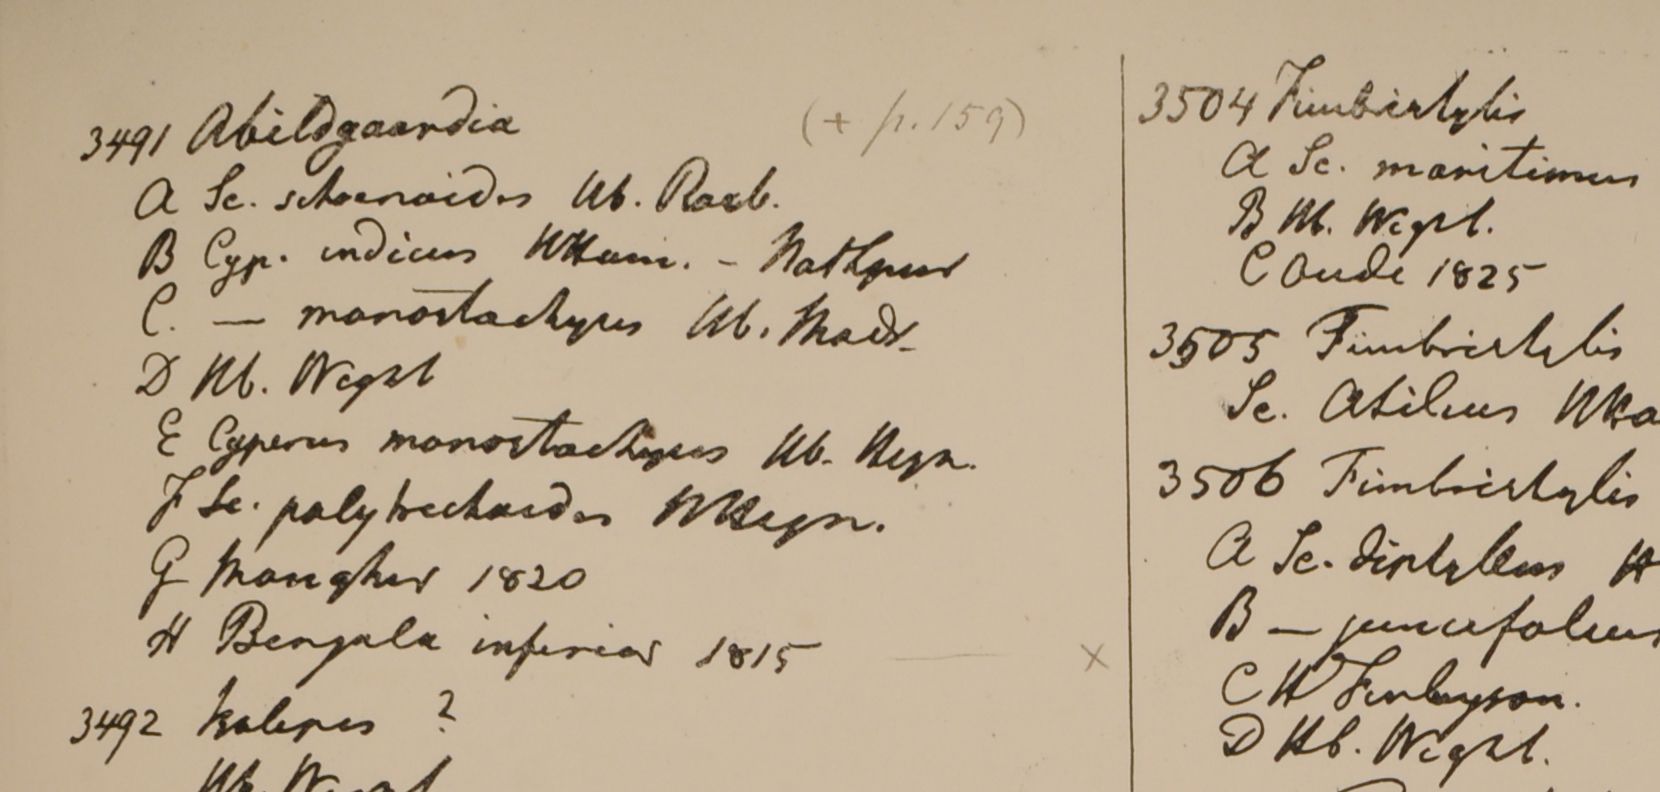 3491 Abildgaardia (+ p. 159)
A Sc. schoenoides Hb. Roxb.
B Cyp. indicus HHam. - Nathpur
C. — monostachyus Hb. Madr.
D Hb. Wight
E Cyperus monostachyus Hb. Heyn.
F Sc. polytrichoides HHeyn.
G Monghir 1820
H Bengala inferior 1815 — x
3492 Isolepis ?
Hb. Wight
3504 Fimbristylis
A Sc. maritimus
B Hb. Wight.
C Oude 1825
3505 Fimbristylis
Sc.
3506 Fimbristylis
A Sc. diphyllus H
B — juncifolius
C H Finlayson.
D Hb. Wight.